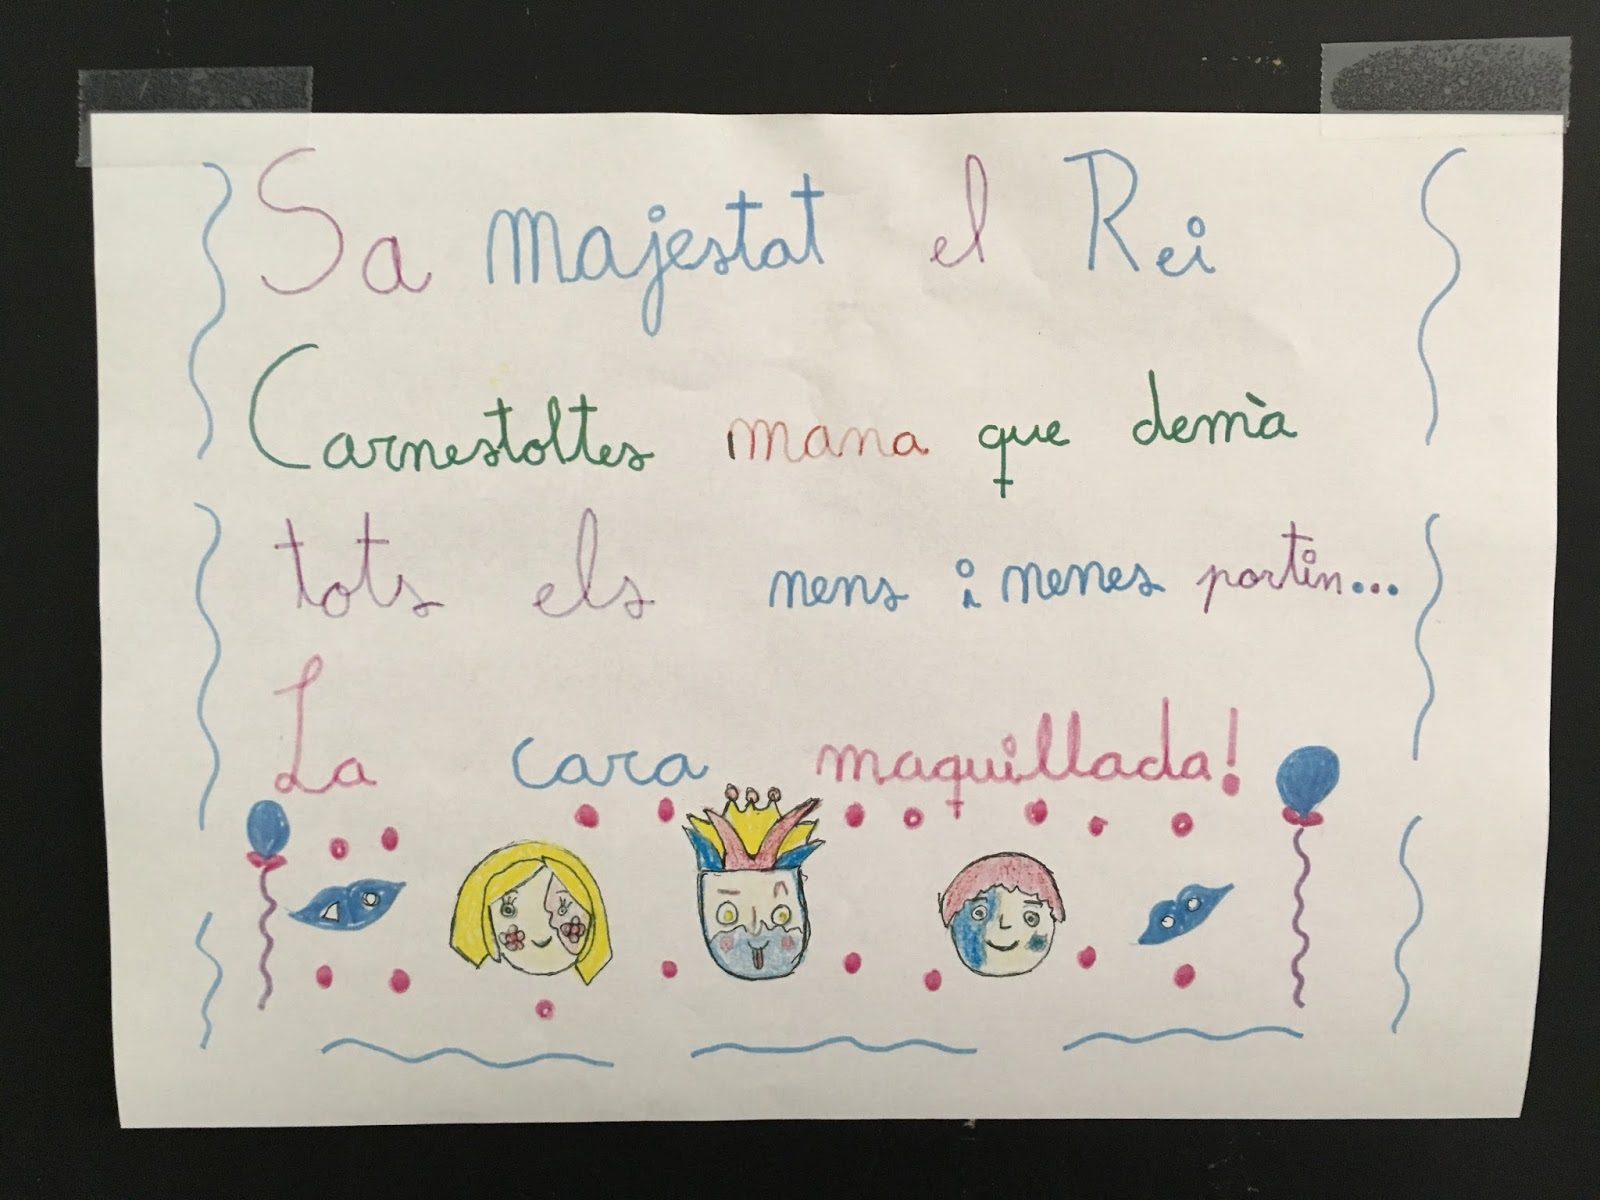 Sa majestat el Rei
Carnestoltes mana que demà
tots els nens i nenes portin...
La cara maquillada!